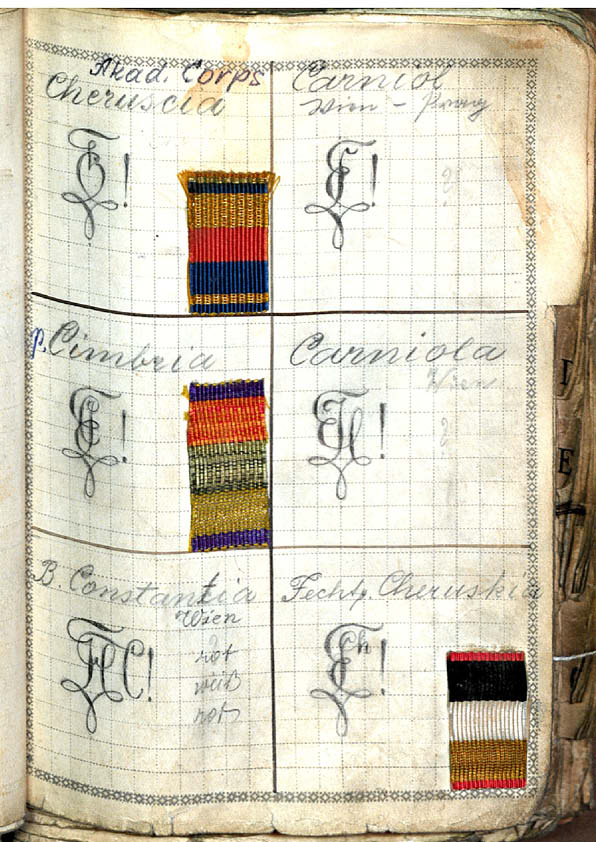 Akad. Corps
Cheruscia
!
Carniol
Wien - Prag
!
?
p. Cimbria
!
Carniola
Wien
!
?
B. Constantia
Wien
!
rot
weiß
rot
Fechtv. Cheruskia
!
I
E